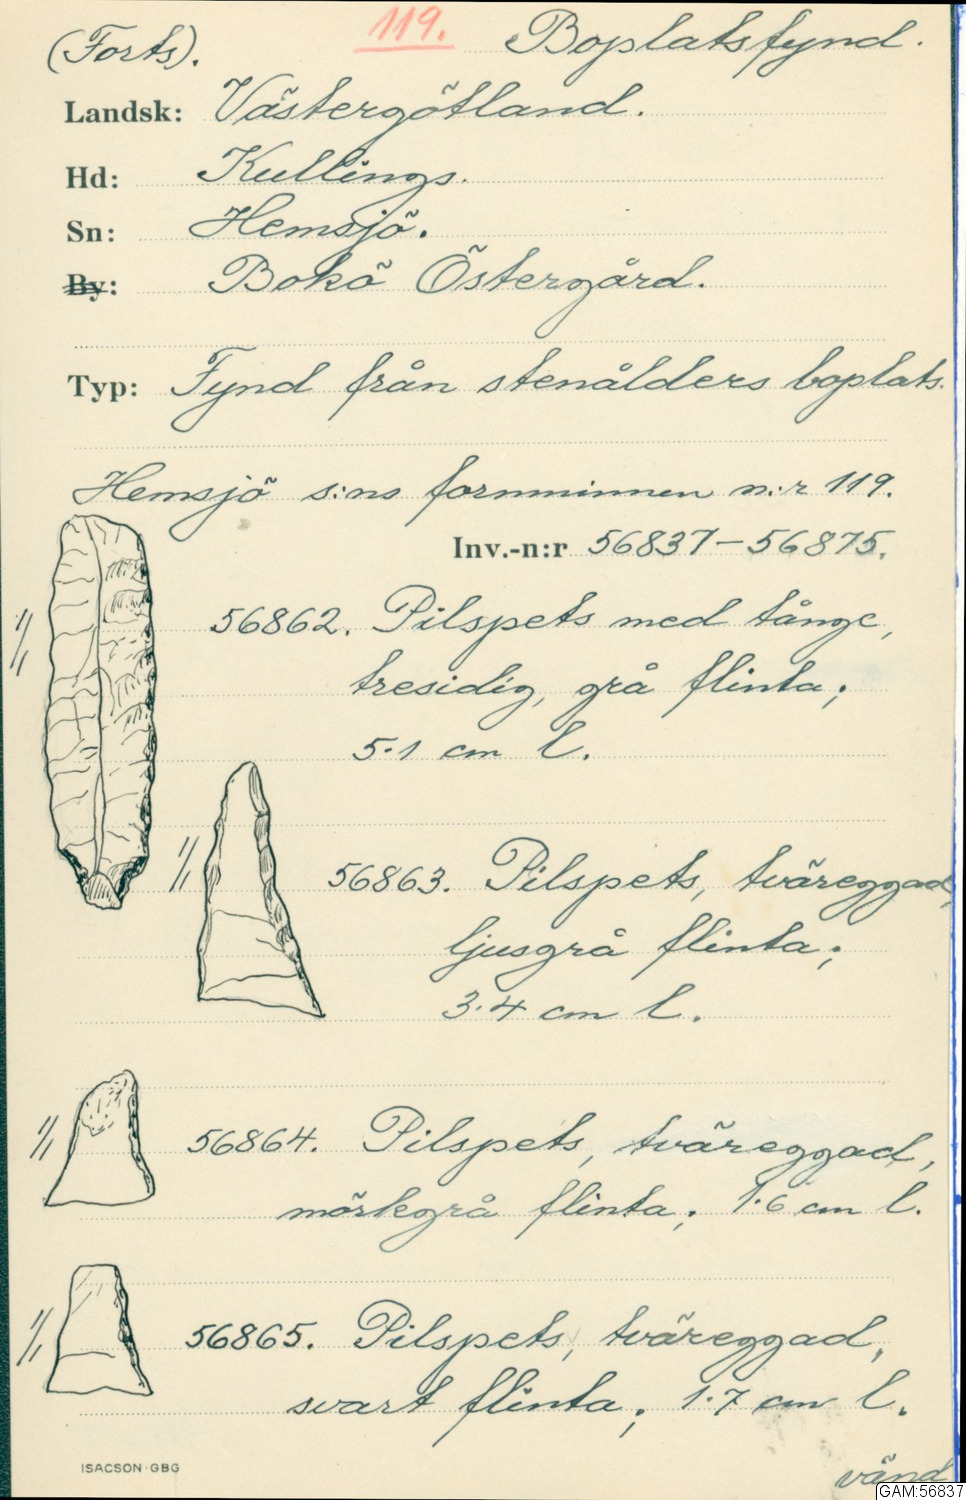 119.
(Forts). Boplatsfynd.
Landsk: Västergötland.
Hd: Kullings.
Sn: Hemsjö.
By: Bokö Östergård.
Typ: Fynd från stenålders boplats.
Hemsjö s:ns fornminnen n:r 119.
Inv.-n:r 56837-56875.
1/1
56862. Pilspets med tånge,
tresidig, grå flinta;
5.1 cm l.
1/1
56863. Pilspets, tväreggad,
ljusgrå flinta;
3.4 cm l.
1/1
56864. Pilspets, tväreggad,
mörkgrå flinta; 1.6 cm l.
1/1
56865. Pilspets, tväreggad,
svart flinta; 1.7 cm l.
ISACSON·GBG
vänd
GAM:56837